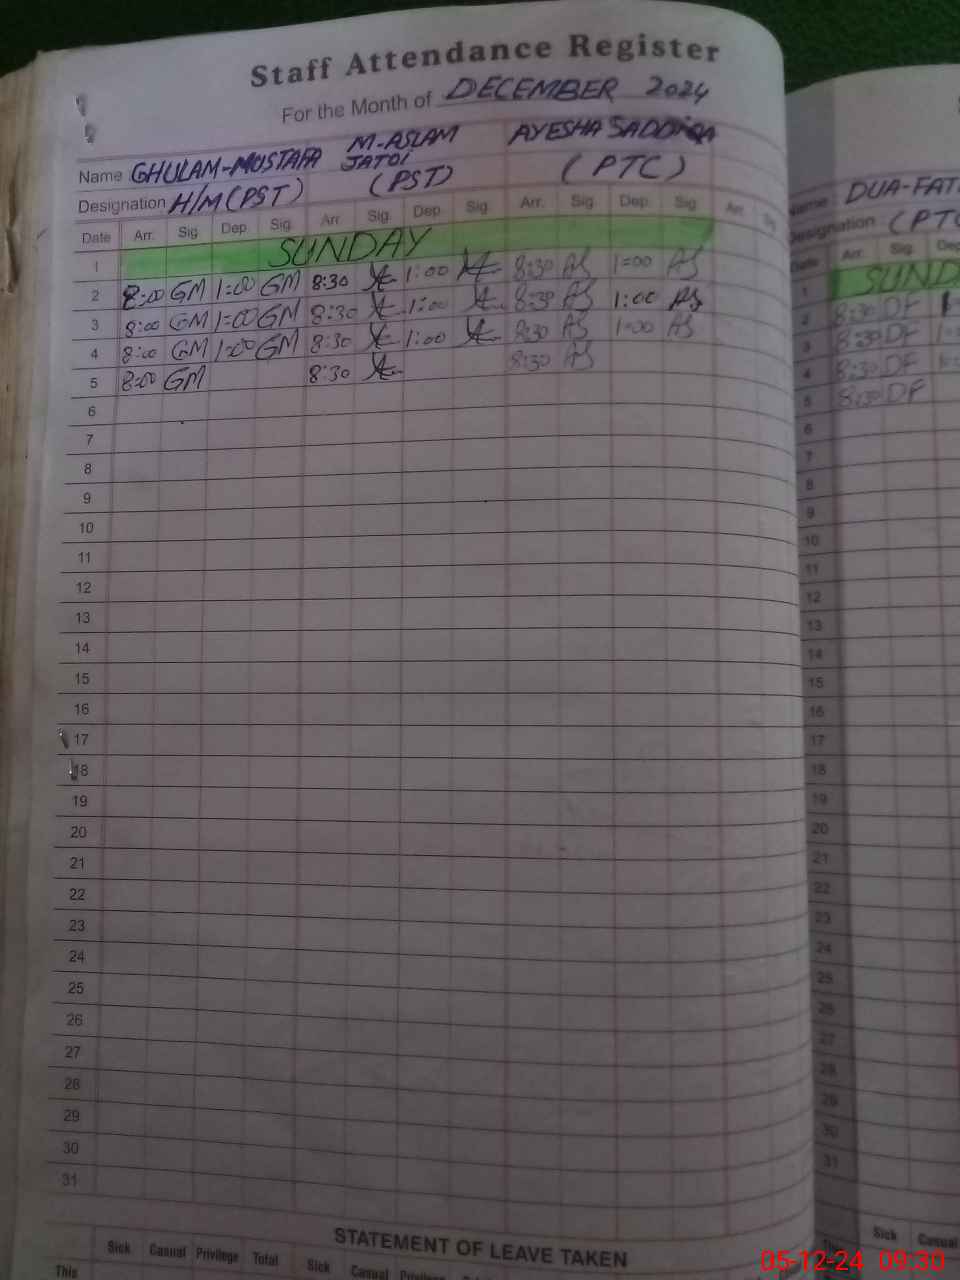 Staff Attendance Register
For the Month of DECEMBER 2024
Name GHULAM-MUSTAFA M-ASLAM JATOI AYESHA SADDIQA
Designation H/M (PST) (PST) (PTC)
Date Arr. Sig. Dep. Sig. Arr. Sig. Dep. Sig. Arr. Sig. Dep. Sig. Arr. Sig.
1 SUNDAY
2 8:00 GM 1:00 GM 8:30 1:00 8:30 AS 1:00 AS
3 8:00 GM 1:00 GM 8:30 1:00 8:30 AS 1:00 AS
4 8:00 GM 1:00 GM 8:30 1:00 8:30 AS 1:00 AS
5 8:00 GM 8:30 8:30 AS
6
7
8
9
10
11
12
13
14
15
16
17
18
19
20
21
22
23
24
25
26
27
28
29
30
31
STATEMENT OF LEAVE TAKEN
Sick Casual Privilege Total Sick Casual Privilege
This
Name DUA-FAT
Designation (PTC
Date Arr. Sig. Dep
1 SUND
2 8:30 DF
3 8:30 DF
4 8:30 DF
5 8:30 DF
6
7
8
9
10
11
12
13
14
15
16
17
18
19
20
21
22
23
24
25
26
27
28
29
30
31
Sick Casual
This
05-12-24 09:30